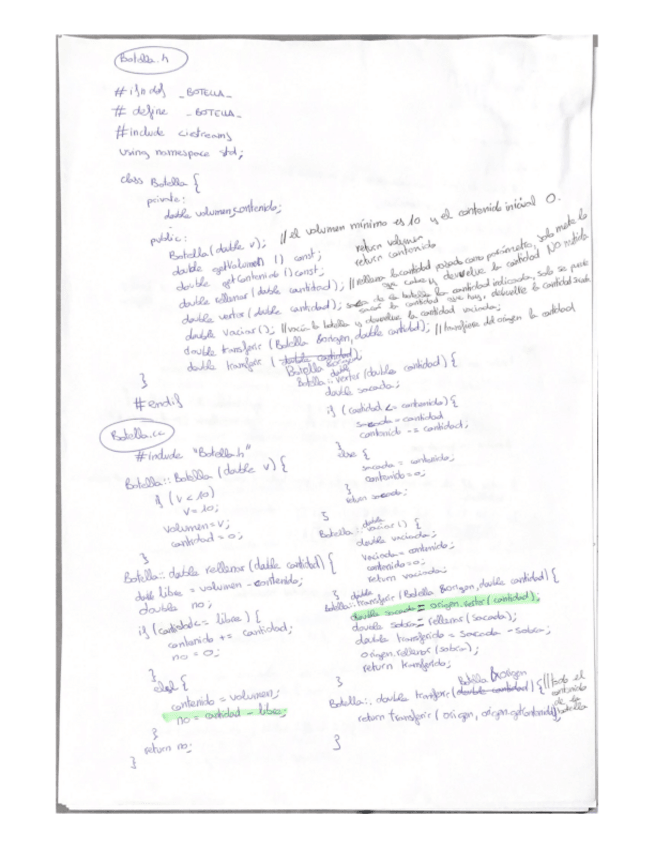 Botella.h
#ifndef _BOTELLA_
#define _BOTELLA_
#include <iostream>
using namespace std;
class Botella {
private:
double volumen, contenido;
public:
Botella (double v); // el volumen mínimo es 10 y el contenido inicial 0.
double getVolumen () const; return volumen
double getContenido () const; return contenido
double rellenar (double cantidad); // rellena la cantidad pasada como parámetro, solo mete lo que cabe y devuelve la cantidad NO metida
double verter (double cantidad); saca de la botella la cantidad indicada, solo se puede sacar la cantidad que hay, devuelve la cantidad sacada
double vaciar (); // vacía la botella y devuelve la cantidad vaciada;
double transferir (Botella &origen, double cantidad); // transfiere del origen la cantidad
double transferir (double cantidad);
Botella &origen
}
#endif
Botella.cc
#include "Botella.h"
Botella:: Botella (double v) {
if (v < 10)
v = 10;
volumen = v;
cantidad = 0;
}
Botella:: double rellenar (double cantidad) {
double libre = volumen - contenido;
double no;
if (cantidad <= libre) {
contenido += cantidad;
no = 0;
}
else {
contenido = volumen;
no = cantidad - libre;
}
return no;
}
double
Botella:: verter (double cantidad) {
double sacada;
if (cantidad <= contenido) {
sacada = cantidad
contenido -= cantidad;
}
else {
sacada = contenido;
contenido = 0;
}
return sacada;
}
double
Botella:: vaciar () {
double vaciada;
vaciada = contenido;
contenido = 0;
return vaciada;
}
double
Botella:: transferir (Botella &origen, double cantidad) {
double sacada = origen.verter (cantidad);
double sobra = rellenar (sacada);
double transferido = sacada - sobra;
origen.rellenar (sobra);
return transferido;
}
Botella &origen
Botella:: double transferir (double cantidad) { // todo el contenido de la botella
return transferir (origen, origen.getContenido());
}